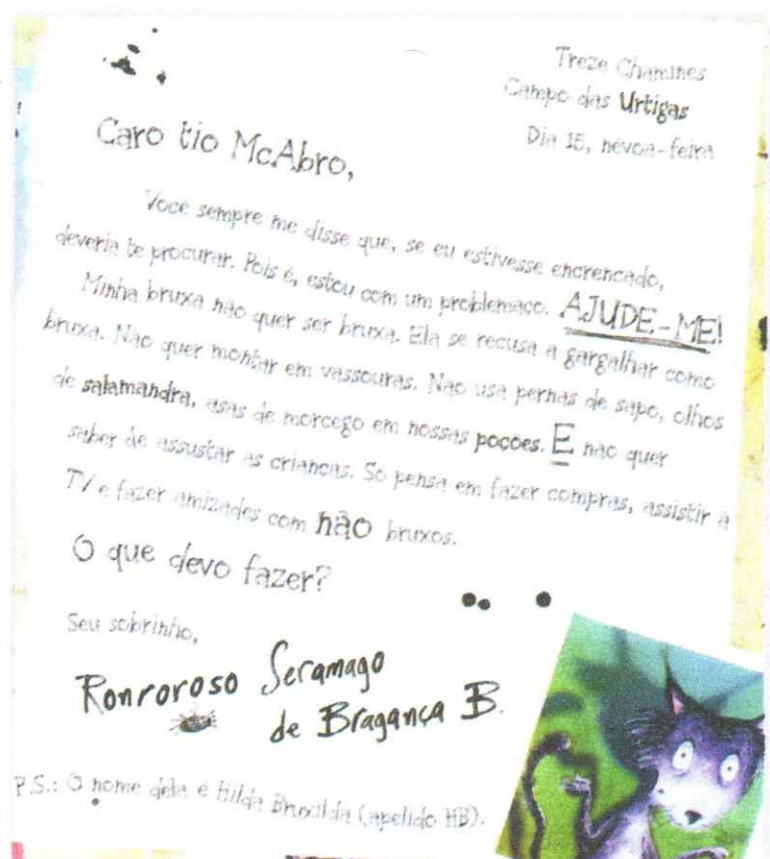 Treze Chaminés
Campo das Urtigas
Dia 15, névoa-feira
Caro tio McAbro,
Você sempre me disse que, se eu estivesse encrencado,
deveria te procurar. Pois é, estou com um problemaço. AJUDE-ME!
Minha bruxa não quer ser bruxa. Ela se recusa a gargalhar como
bruxa. Não quer montar em vassouras. Não usa pernas de sapo, olhos
de salamandra, asas de morcego em nossas poções. E não quer
saber de assustar as crianças. Só pensa em fazer compras, assistir à
TV e fazer amizades com não bruxos.
O que devo fazer?
Seu sobrinho,
Ronroroso Seramago
de Bragança B.
P.S.: O nome dela é Hilda Bruxilda (apelido HB).